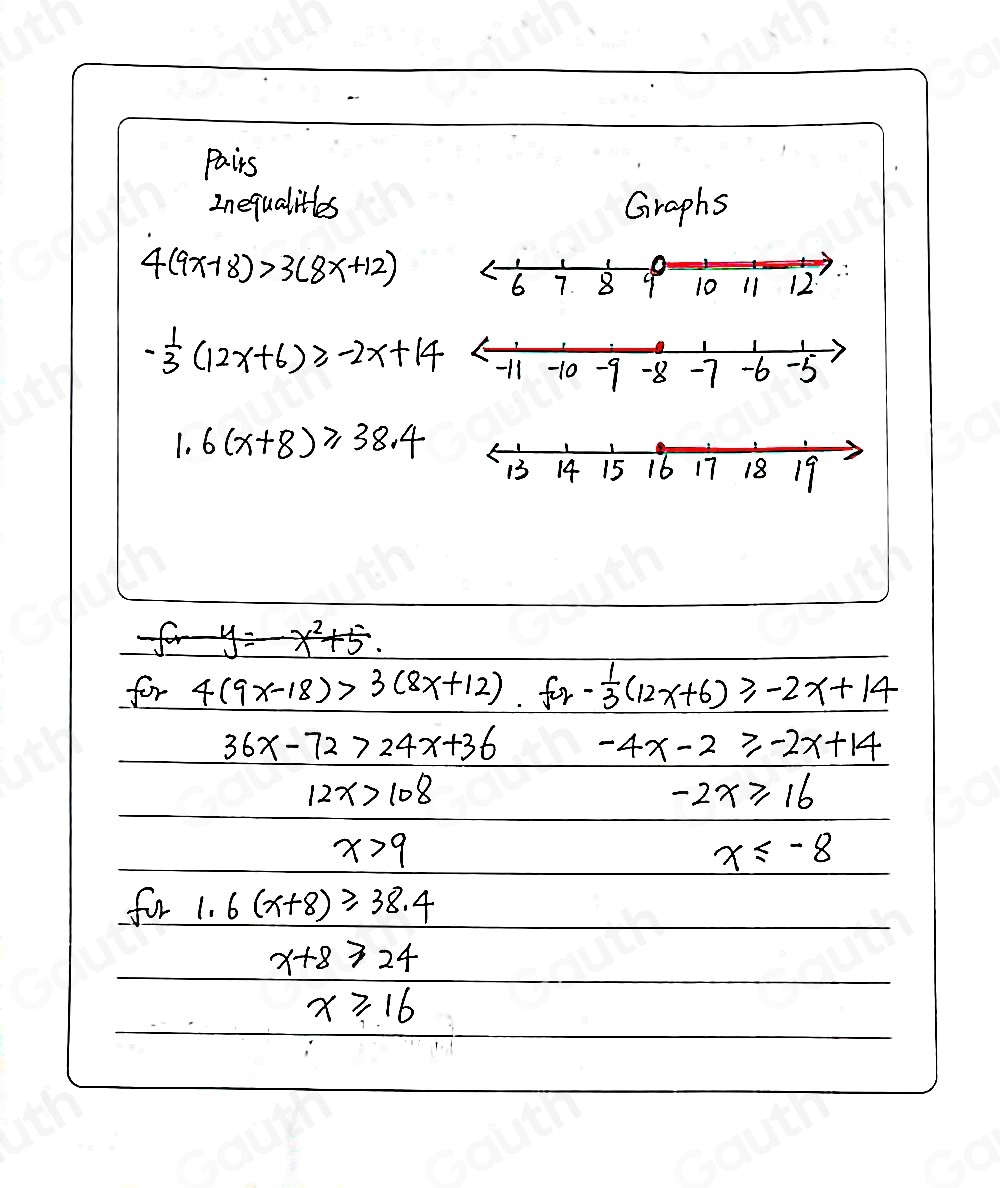 Pairs
Inequalities Graphs
4(9x+8)>3(8x+12)
6 7 8 9 10 11 12
-1/3(12x+6)≥-2x+14
-11 -10 -9 -8 -7 -6 -5
1.6(x+8)≥38.4
13 14 15 16 17 18 19
for y= x²+5.
for 4(9x-18)>3(8x+12). for -1/3(12x+6)≥-2x+14
36x-72>24x+36 -4x-2≥-2x+14
12x>108 -2x≥16
x>9 x≤-8
for 1.6(x+8)≥38.4
x+8≥24
x≥16
Gauth